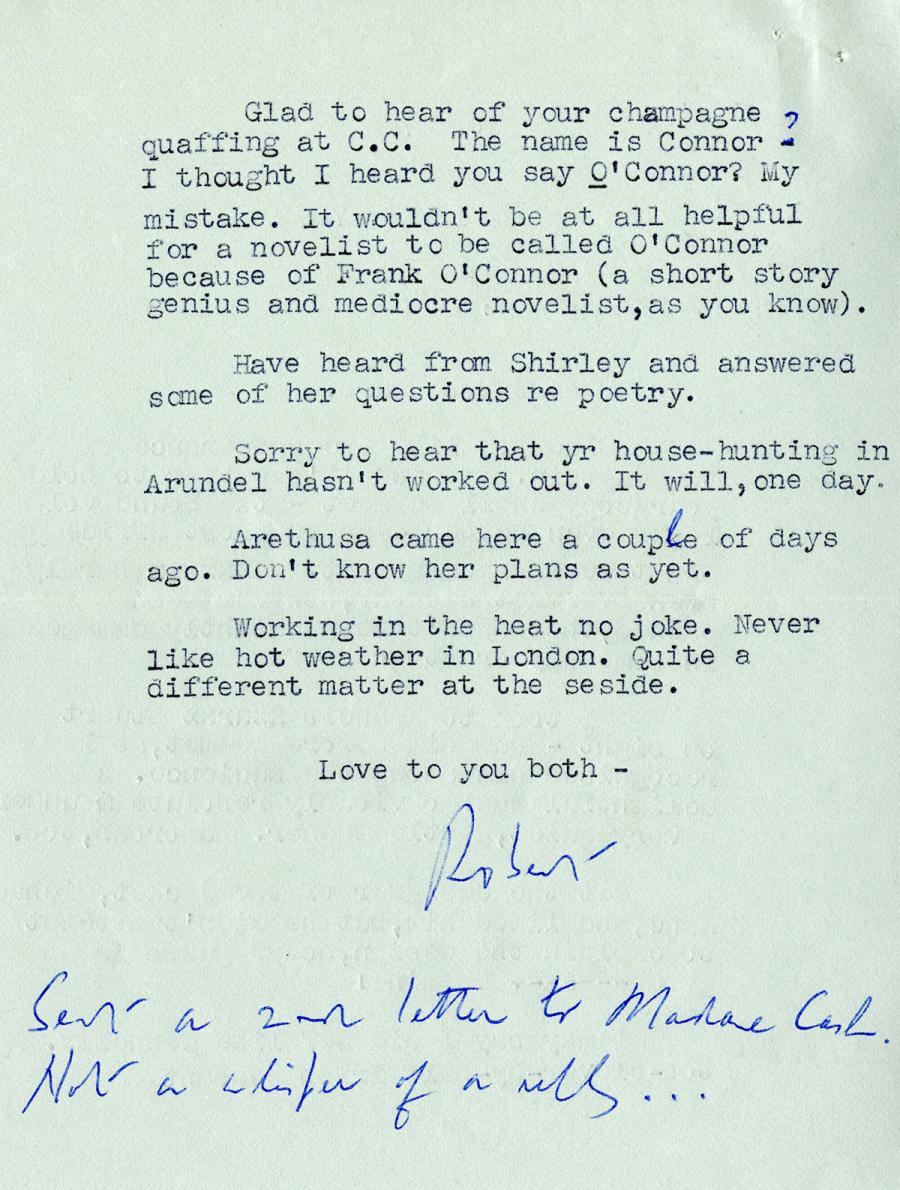 Glad to hear of your champagne
quaffing at C.C. The name is Connor ?
I thought I heard you say O'Connor? My
mistake. It wouldn't be at all helpful
for a novelist to be called O'Connor
because of Frank O'Connor (a short story
genius and mediocre novelist,as you know).
Have heard from Shirley and answered
some of her questions re poetry.
Sorry to hear that yr house-hunting in
Arundel hasn't worked out. It will,one day.
Arethusa came here a couple of days
ago. Don't know her plans as yet.
Working in the heat no joke. Never
like hot weather in London. Quite a
different matter at the seside.
Love to you both -
Robert
Sent a 2nd letter to Madame Cash.
Not a whisper of a reply...